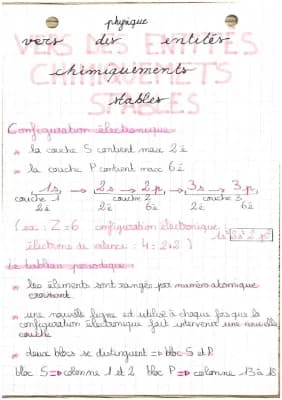 physique
vers des entités
VERS DES ENTITÉES
chimiquements
CHIMIQUEMETS
stables
STABLES
Configuration électronique
la couche S contient max 2é
la couche P contient max 6é
1s → 2s → 2p → 3s → 3p
couche 1 couche 2 couche 3
2é 2é 6é 2é 6é
(ex : Z=6 configuration électronique 1s² 2s² 2p²
électrons de valence : 4 = 2+2)
Le tableau périodique
les éléments sont rangés par numéro atomique
croissant
une nouvelle ligne est utilisé à chaque fois que la
configuration électronique fait intervenir une nouvelle
couche
deux blocs se distinguent => bloc S et P
bloc S => colonne 1 et 2 bloc P => colonne 13 à 18